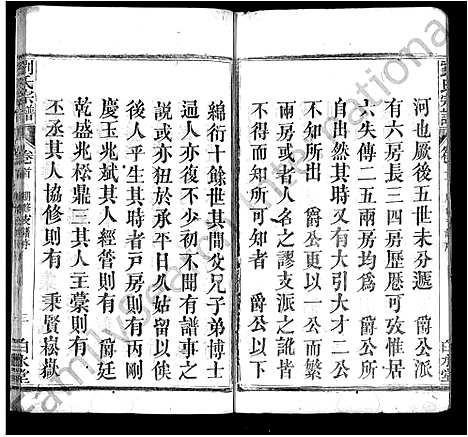 劉氏宗譜
河也厥後五世未分遞　爵公派
有六房長三四房歷歷可攷惟居
六失傳二五兩房均爲　爵公所
自出然其時又有大引大才二公
不知所出　爵公更以一公而繁
踵兩者人名之謬支派之訛皆
爵公以下
綿衍十餘世其間父兄子弟博士
通人亦復不少初不聞有譜事之
說或亦狃於承平日久姑留以俟
後人乎生其時者戸房則有丙剛
慶玉兆甘其人經管則有　爵廷
乾盛兆松鼎三其人主稾則有
丕丞其人協修則有　秉賢嶽嶽
劉氏宗譜
卷首
三
白水堂
familysearch
international